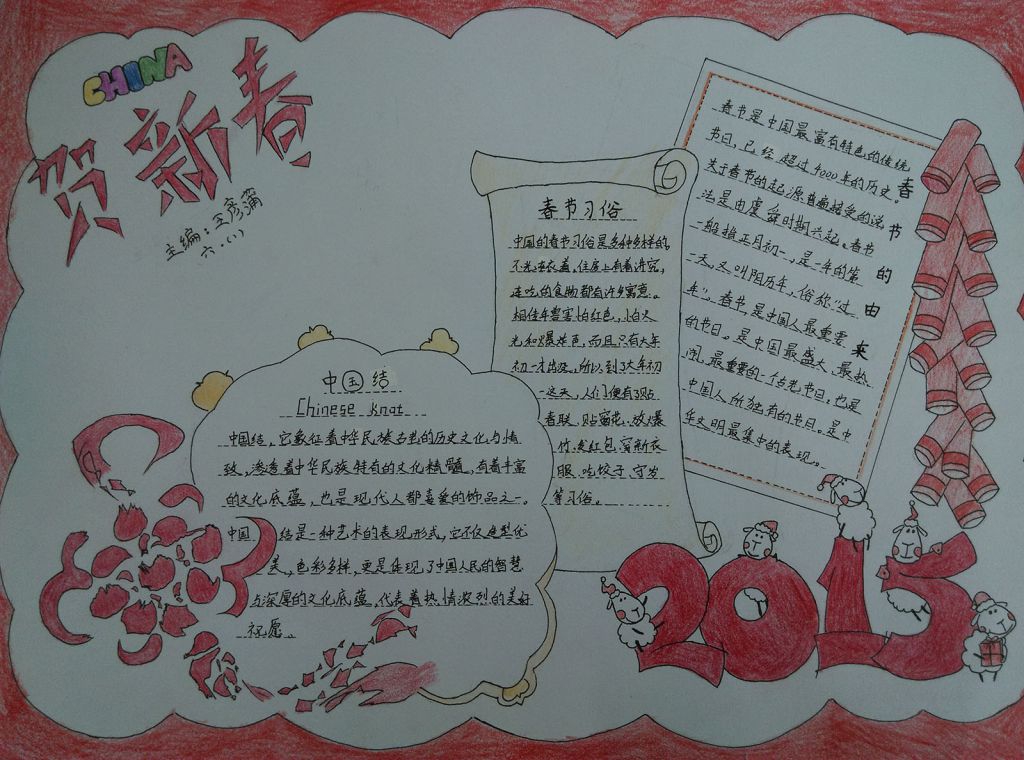 CHINA
贺新春
主编：王彦蒲
六·(1)
春节习俗
中国的春节习俗是多种多样的,
不光在衣着、住房上有着讲究,
连吃的食物都有许多寓意。
相传年兽害怕红色、怕火
光和爆炸声,而且只有大年
初一才出没,所以到了大年初
一这天,人们便有了贴
春联、贴窗花、放爆
竹、发红包、穿新衣
服、吃饺子、守岁
等习俗。
春节的由来
春节是中国最富有特色的传统
节日,已经超过4000年的历史。
关于春节的起源普遍接受的说
法是由虞舜时期兴起。春节
一般指正月初一,是一年的第
一天,又叫阴历年,俗称“过
年”。春节是中国人最重要
的节日。是中国最盛大、最热
闹、最重要的一个传统节日,也是
中国人所独有的节日。是中
华文明最集中的表现。
中国结
Chinese knot
中国结,它象征着中华民族古老的历史文化与情
致,渗透着中华民族特有的文化精髓,有着丰富
的文化底蕴,也是现代人都喜爱的饰品之一。
中国结是一种艺术的表现形式,它不仅造型优
美、色彩多样,更是体现了中国人民的智慧
与深厚的文化底蕴,代表着热情浓烈的美好
祝愿。
2015